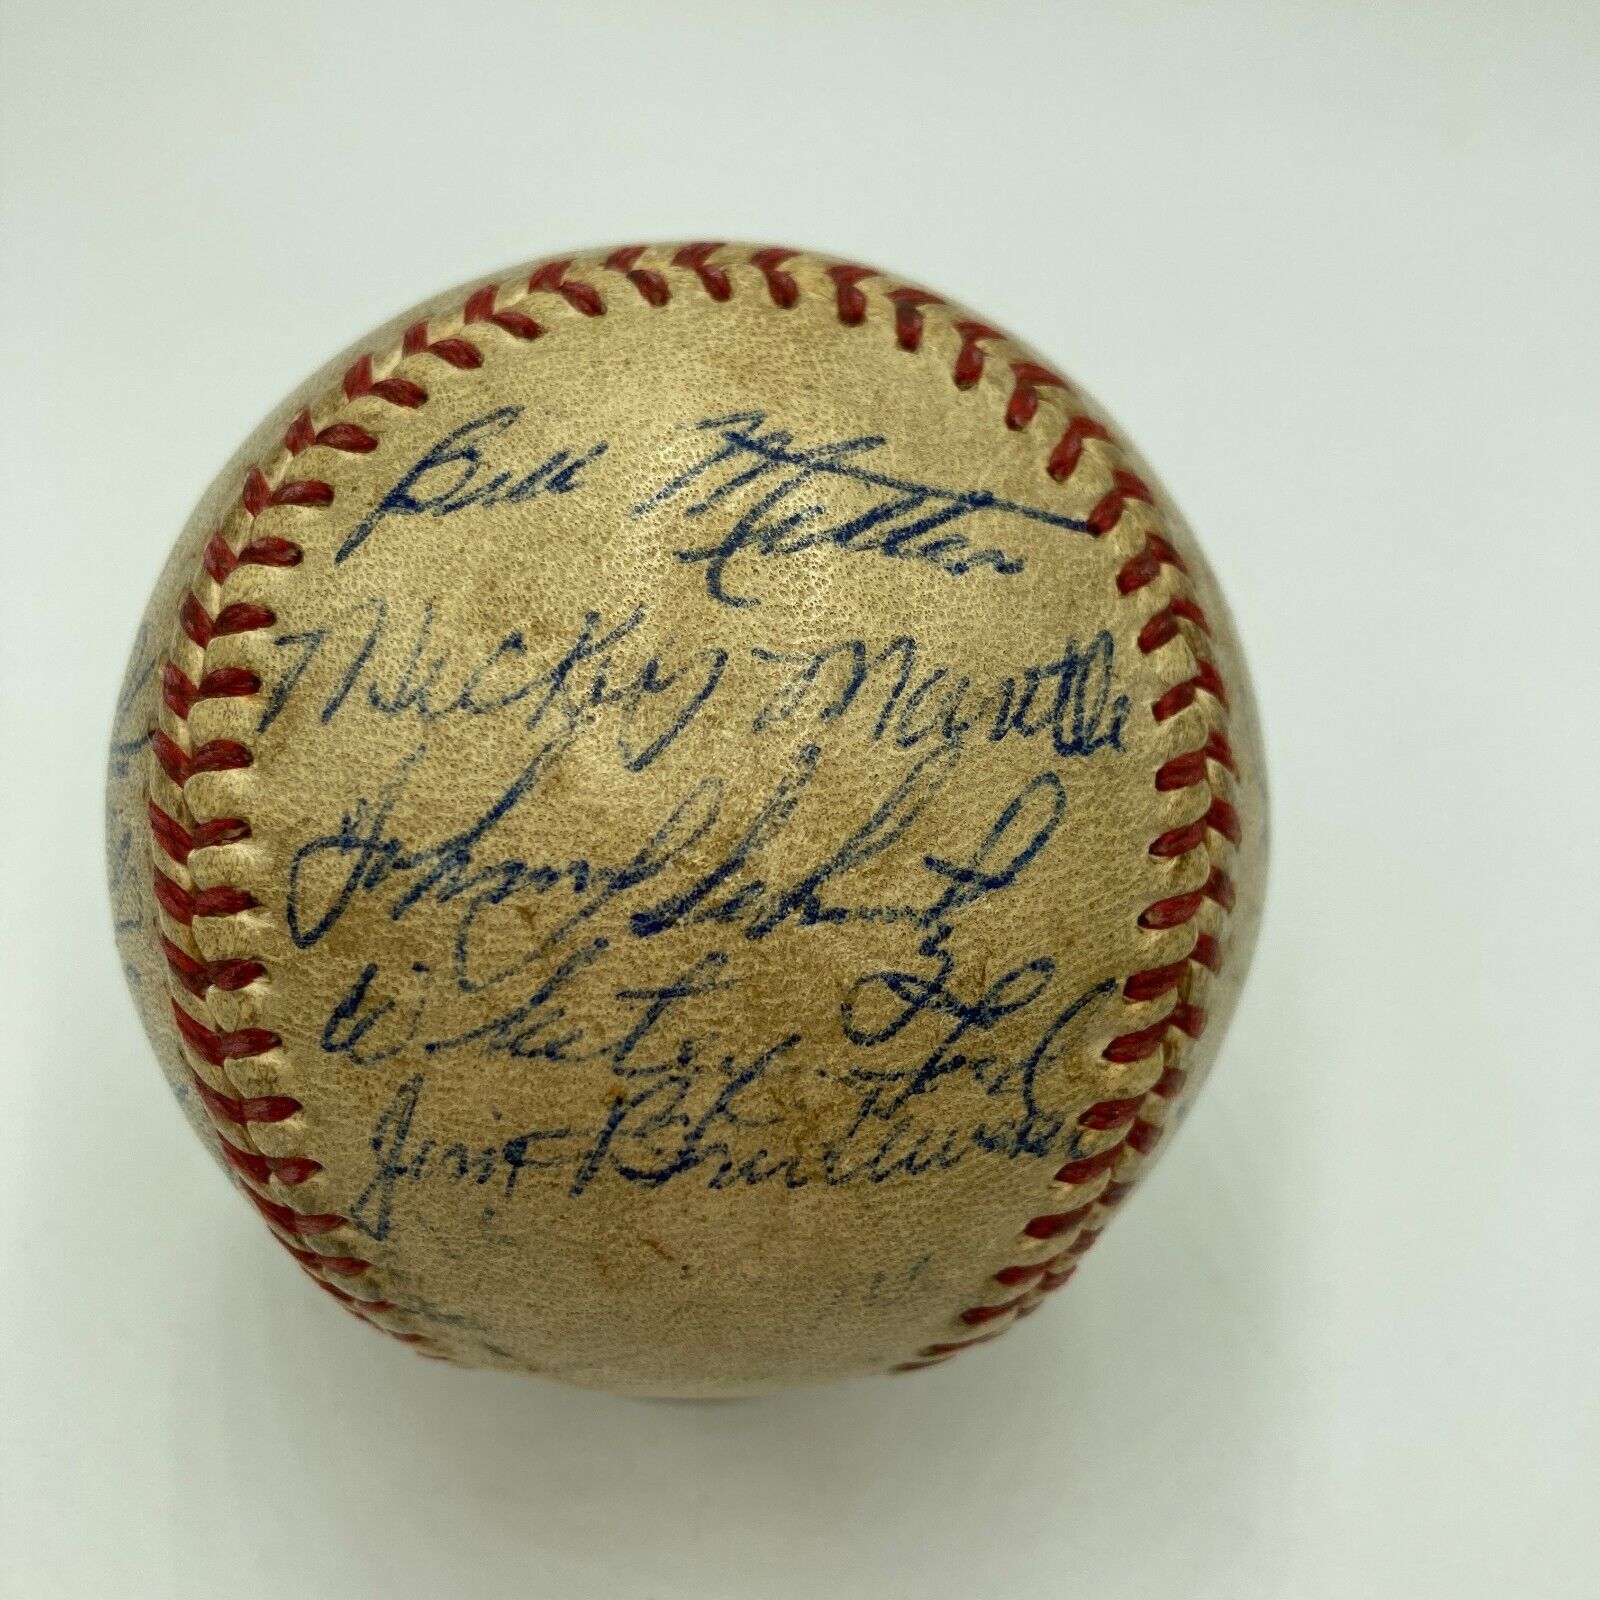 Bill Miller
Mickey Mantle
Johnny Schmitz
Whitey Ford
Jim Brideweser